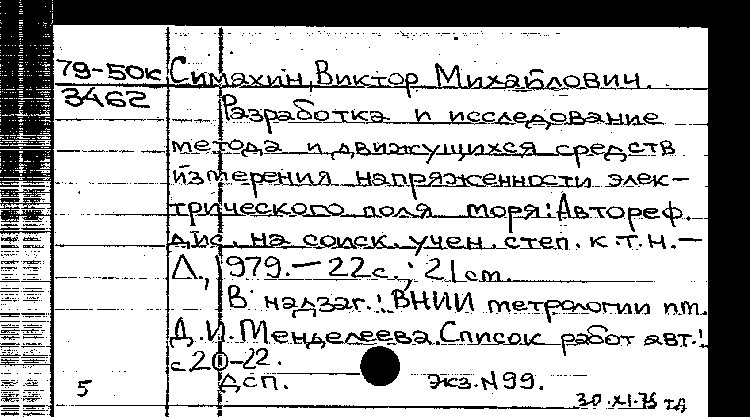 79-50к Симахин, Виктор Михайлович.
3462
Разработка и исследование
метода и движущихся средств
измерения напряженности элек-
трического поля моря: Автореф.
дис. на соиск. учен. степ. к.т.н. —
Л., 1979. — 22 с.; 21 см.
В надзаг.: ВНИИ метрологии им.
Д. И. Менделеева. Список работ авт.:
с 20-22.
5 ДСП. Экз. N 99.
30.XI.